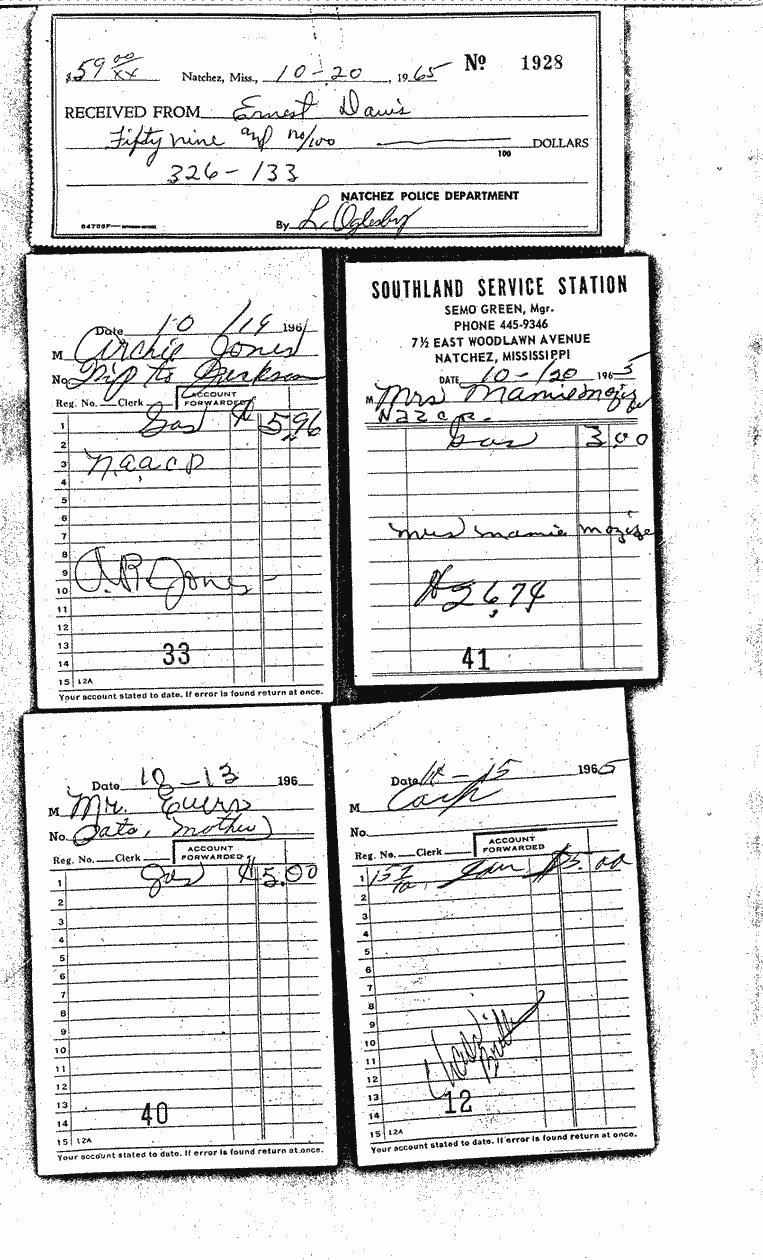 $59 00/xx Natchez, Miss., 10-20, 1965 Nº 1928
RECEIVED FROM Ernest Davis
Fifty nine and no/100 DOLLARS
100
326-133
NATCHEZ POLICE DEPARTMENT
By L. Oglesby
Date 10/19 196
M Archie Jones
No. Trip to Jackson
Reg. No. Clerk ACCOUNT FORWARDED
1 Gas $ 5.96
2
3 N.a.a.c.p
4
5
6
7
8
9 A.R. Jones
10
11
12
13
33
14
15 12A
Your account stated to date. If error is found return at once.
SOUTHLAND SERVICE STATION
SEMO GREEN, Mgr.
PHONE 445-9346
7½ EAST WOODLAWN AVENUE
NATCHEZ, MISSISSIPPI
DATE 10-20 1965
M Mrs Mamie
Naacp.
Gas 3.00
Mrs Mamie
$26.74
41
Date 10-13 196
M Mr. Evers
No. Oats, mother
Reg. No. Clerk ACCOUNT FORWARDED
1 gas $5.00
2
3
4
5
6
7
8
9
10
11
12
13
40
14
15 12A
Your account stated to date. If error is found return at once.
Date 15 1965
M Cash
No.
Reg. No. Clerk ACCOUNT FORWARDED
1 $5.00
2
3
4
5
6
7
8
9
10
11
12
13
12
14
15 12A
Your account stated to date. If error is found return at once.